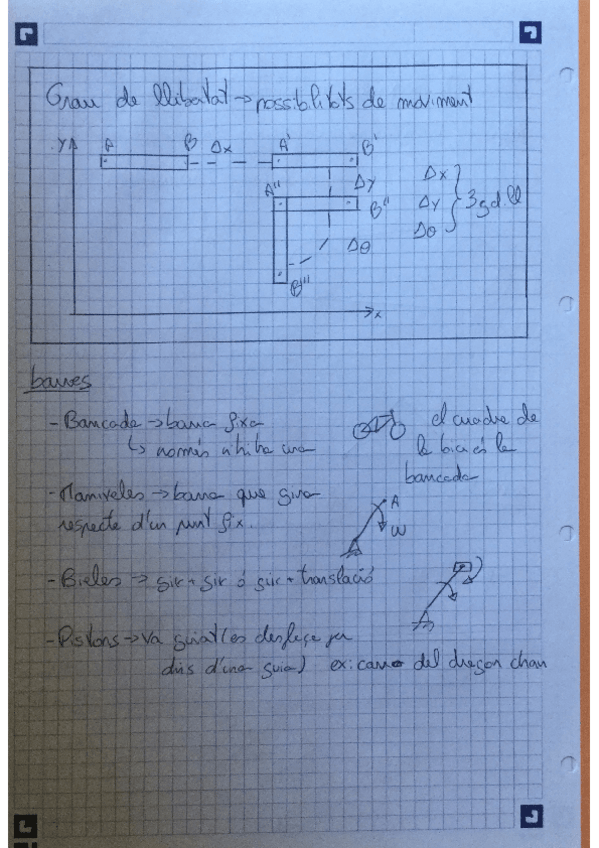 Grau de llibertat → possibilitats de moviment
Y A B Δx A' B'
A'' ΔY B''
Δθ
B'''
x
Δx
ΔY
Δθ
3 gd.ll
barres
- Bancada → barra fixa
↳ només n'hi ha una
el cuadre de
la bici és la
bancada
- Maniveles → barra que gira
respecte d'un punt fix.
A
W
- Bieles → gir + gir ó gir + translació
- Pistons → va guiat (es desplaça per
dins d'una guia) ex: carro del dragon chan